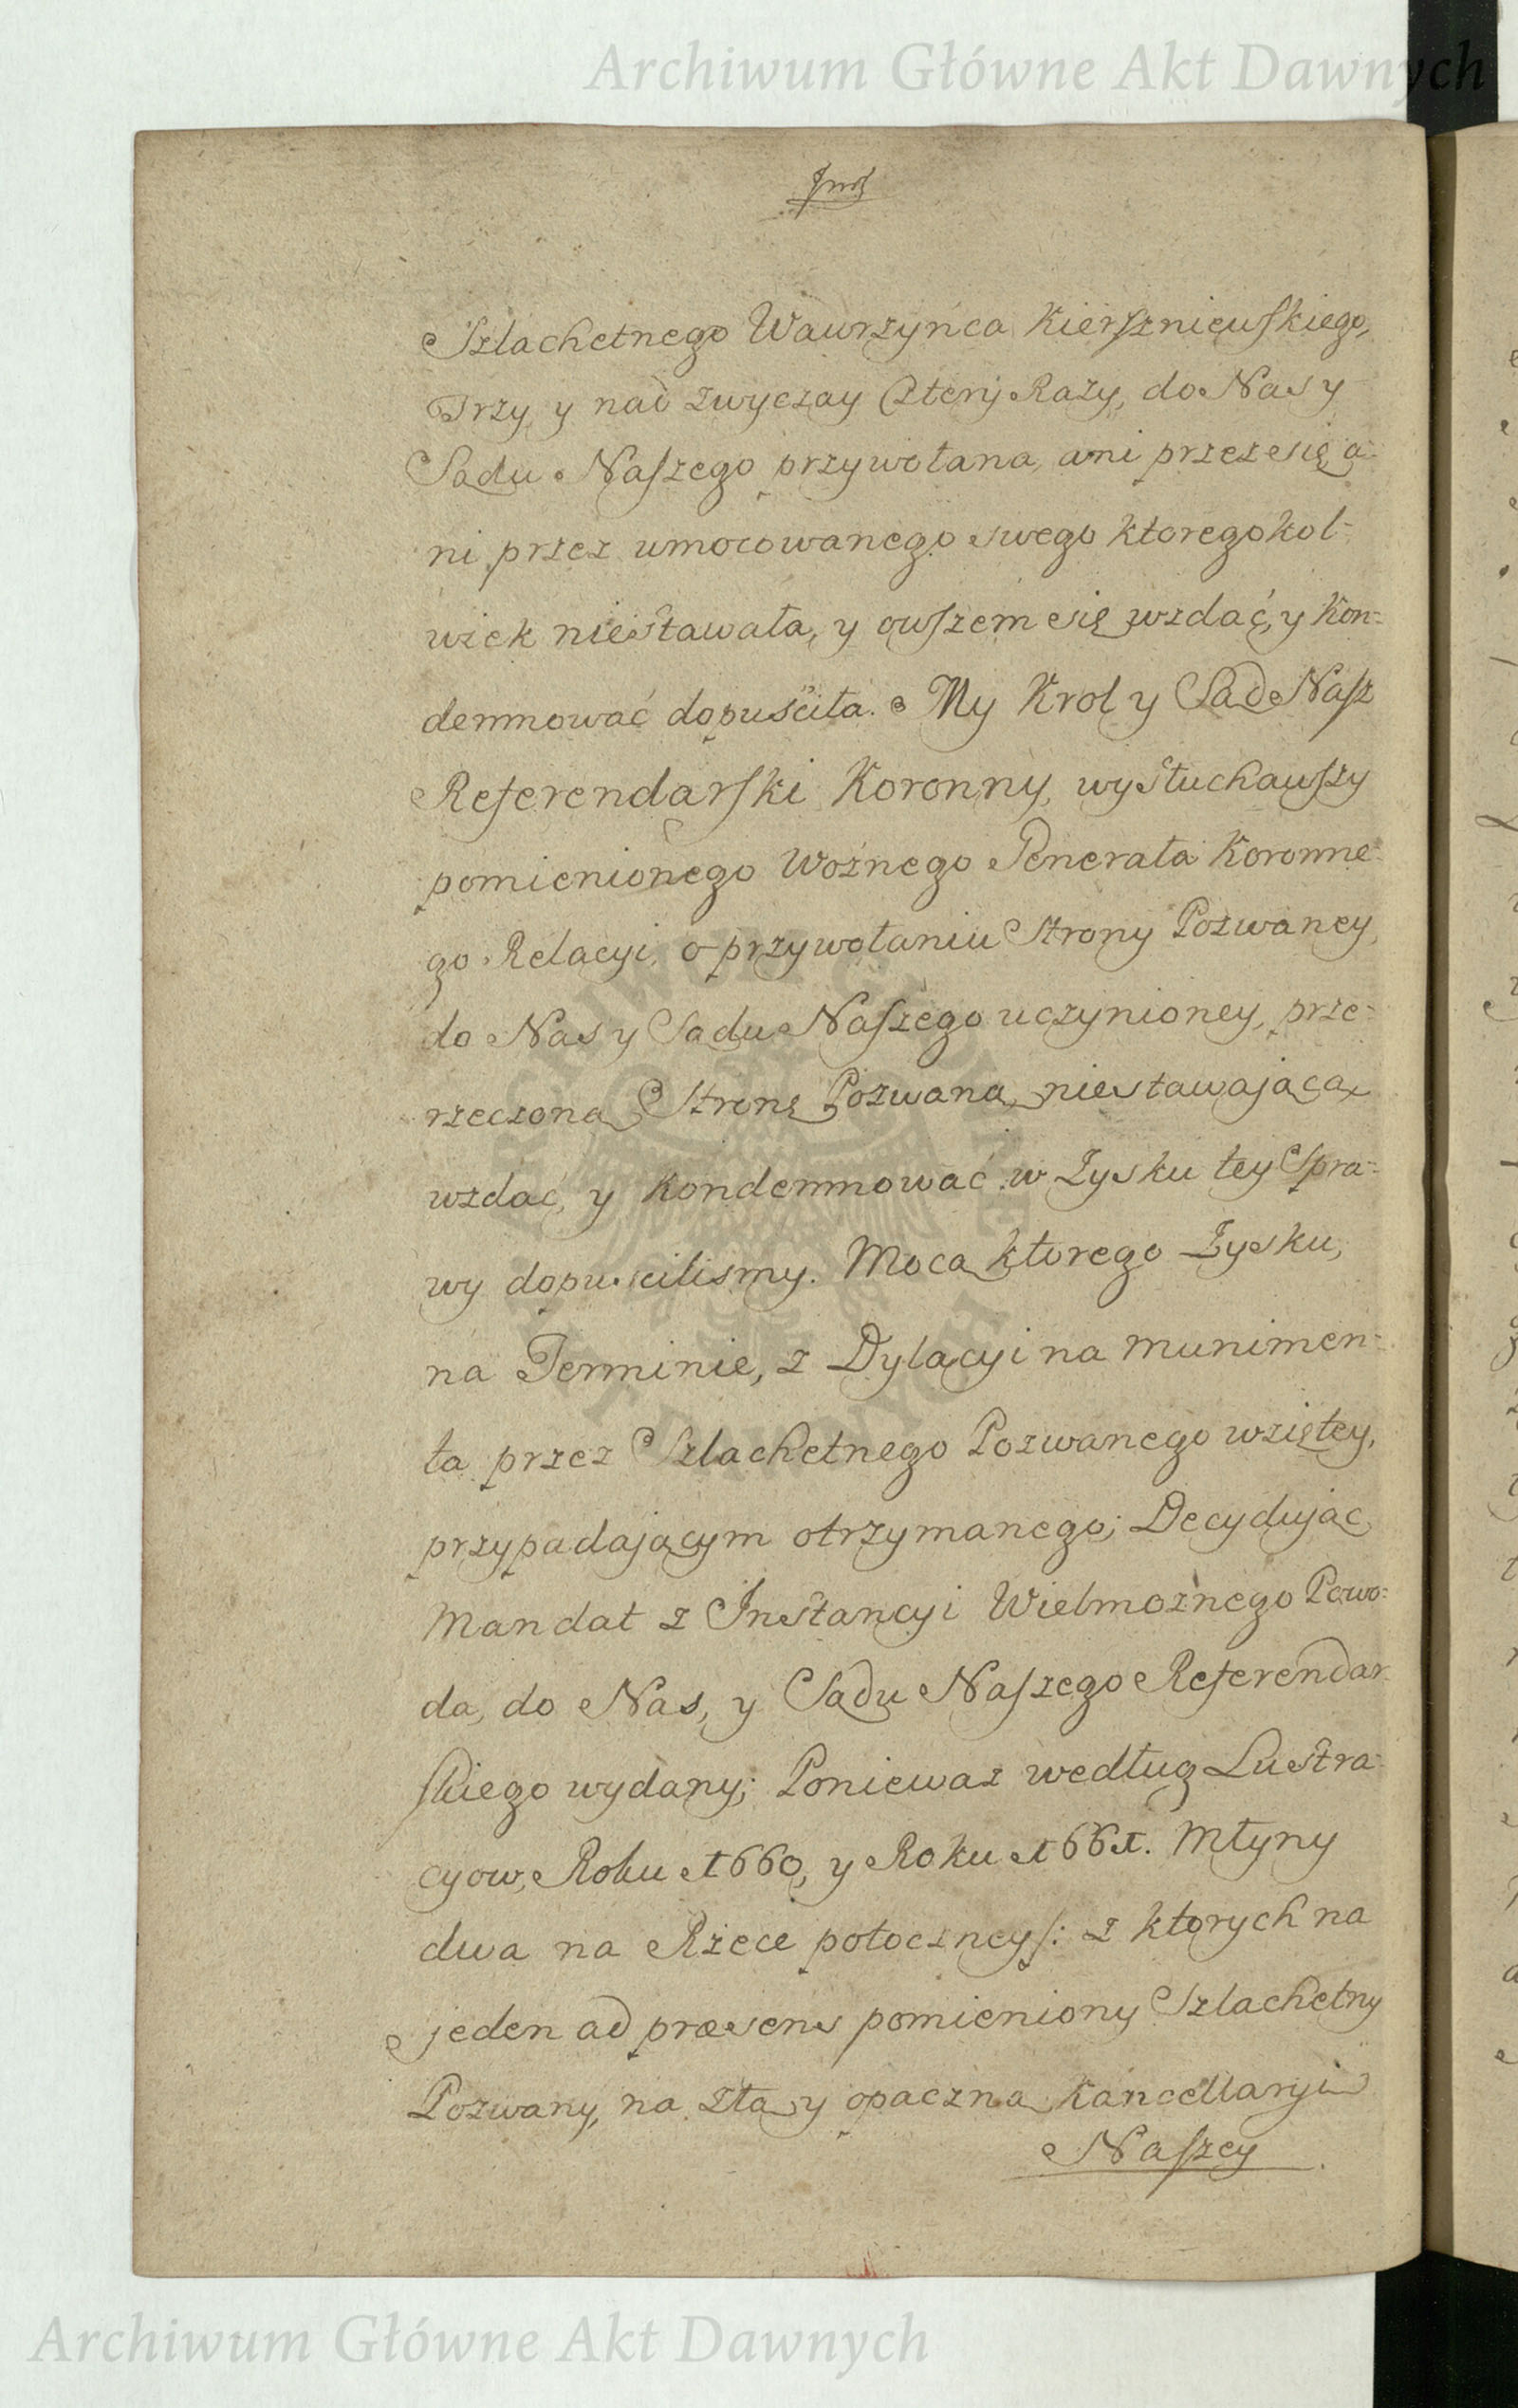 Archiwum Główne Akt Dawnych
Szlachetnego Wawrzyńca Kierszniewskiego,
Trzy y nad zwyczay Cztery Razy, do Nas y
Sądu Naszego przywołana, ani przez się, a-
ni przez umocowanego swego ktoregokol-
wiek niestawała, y owszem się wzdać, y Kon-
demnować dopuściła. My Krol y Sąd Nasz
Referendarski Koronny, wysłuchawszy
pomienionego Woznego Generała Koronne-
go Relacyi, o przywołaniu Strony Pozwaney,
do Nas y Sądu Naszego uczynioney, prze-
rzeczoną Stronę Pozwaną, niestawaiącą
wzdać, y Kondemnować w Zysku tey Spra-
wy dopuscilismy. Mocą ktorego Zysku,
na Terminie, z Dylacyi na munimen-
ta przez Szlachetnego Pozwanego wziętey,
przypadaiącym otrzymanego; Decyduiąc
Mandat z Instancyi Wielmoznego Powo-
da, do Nas, y Sądu Naszego Referendar-
skiego wydany; Poniewaz według Lustra-
cyow, Roku 1660, y Roku 1661. Młyny
dwa na Rzece potoczney/: z ktorych na
jeden ad præsens pomieniony Szlachetny
Pozwany, na złą y opaczną Kancellaryi
Naszey
Archiwum Główne Akt Dawnych